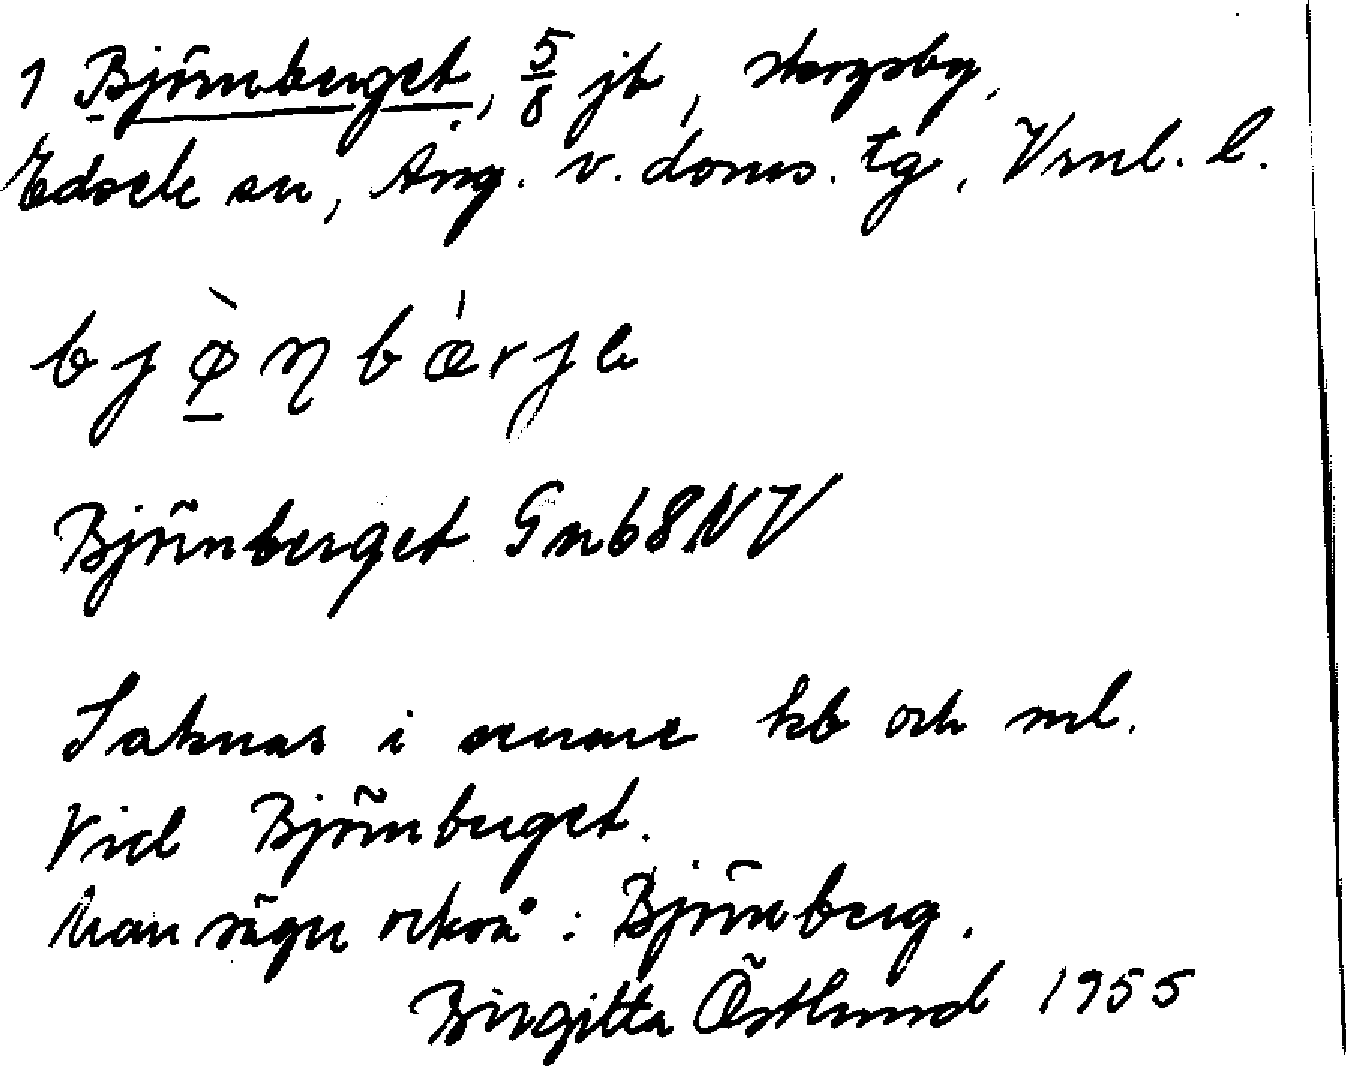 1 Björnberget, 5/8 jb, skogsby,
Edsele sn, Ång. v. doms. tg, Vrnl. l.
bjø̱̀ɳbǽrjə
Björnberget Gm68NV
Saknas i senare kb och ml.
Vid Björnberget.
Man säger också: Björnberg.
Birgitta Östlund 1955